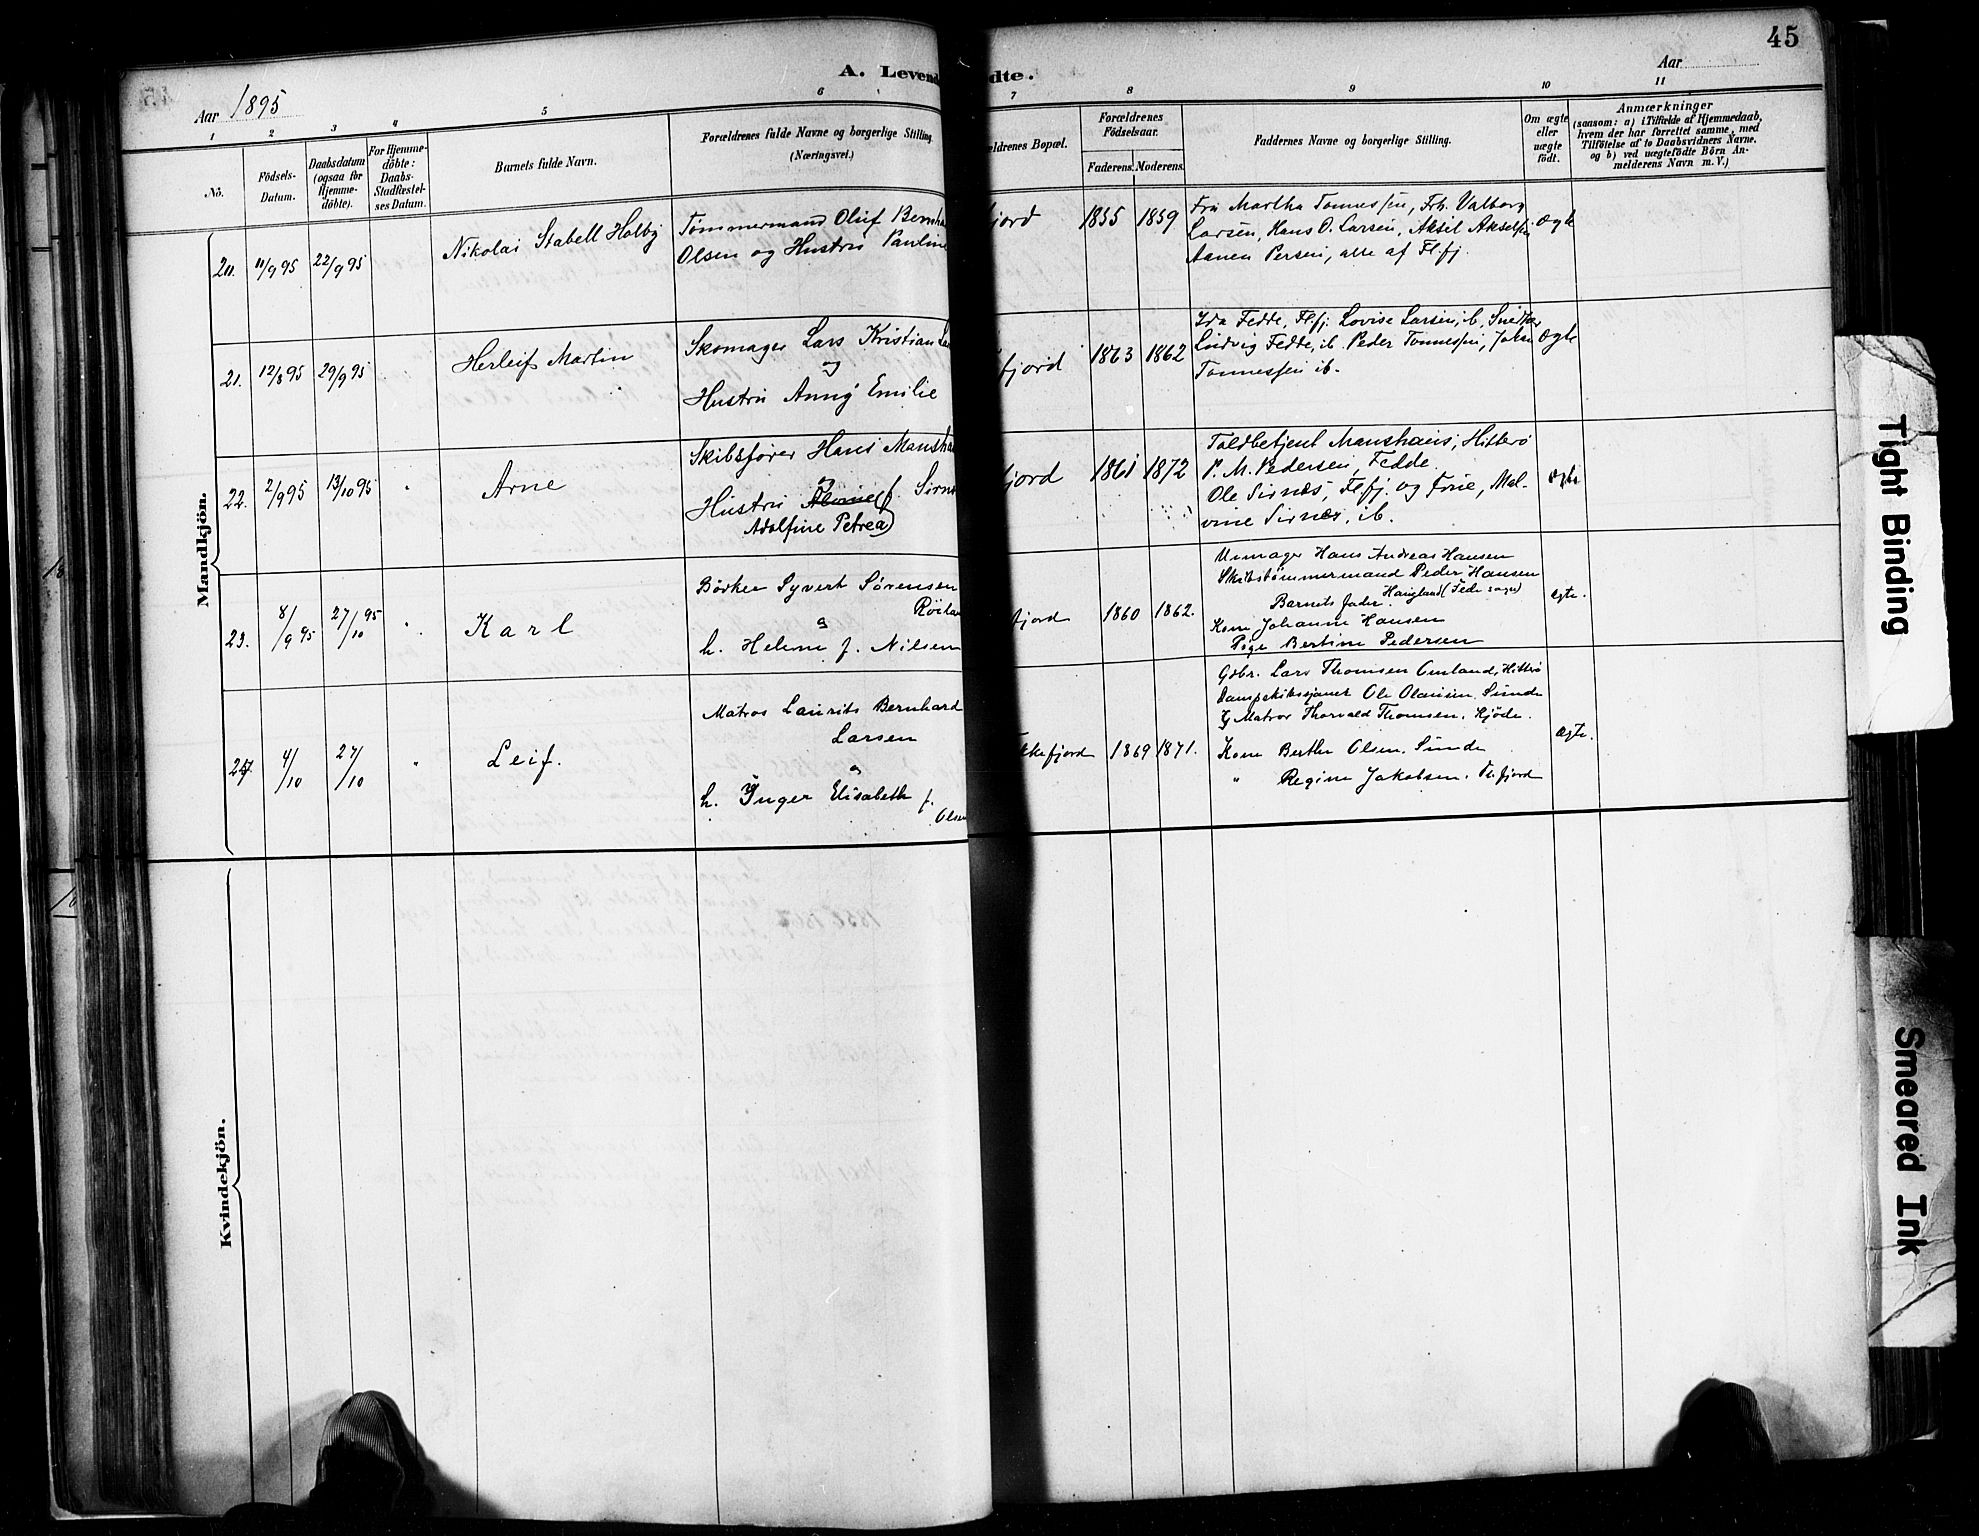 45
A. Levend
dte.
Aar 1895
Aar
1 2 3 4 5 6 7 8 9 10 11
No.
Födsels-
Datum.
Daabsdatum
(ogsaa for
Hjemme-
döbte).
For Hjemme-
döbte:
Daabs-
Stadfæstel-
ses Datum.
Barnets fulde Navn.
Forældrenes fulde Navne og borgerlige Stilling.
(Næringsvei.)
ældrenes Bopæl.
Forældrenes
Födselsaar.
Faderens. Moderens.
Faddernes Navne og borgerlige Stilling.
Om ægte
eller
uægte
født.
Anmærkninger
(saasom: a) i Tilfælde af Hjemmedaab,
hvem der har forrettet samme, med
Tilföielse af to Daabsvidners Navne.
og b) ved uægtefödte Börn An-
melderens Navn m. V.)
Mandkjön.
20. 11/9 95 22/9 95
Nikolai Stabell Holby
Tømmermand Oluf Bernha
Olsen og Hustru Pauline
fjord 1855 1859
Fru Martha Tønnessen, Frk. Valborg
Larsen, Hans O. Larsen, Aksel Akselsen
Aanen Persen, alle af Fl.fj.
Ægte
21. 12/8 95 29/9 95
Herleif Martin
Skomager Lars Kristian La
og
Hustru Anny Emilie
fjord 1863 1862
Ida Fedde, Fl.fj. Lovise Larsen, ib. Snedker
Ludvig Fedde, ib. Peder Tønnessen, Johan
Tønnessen ib.
Ægte
22. 2/9 95 13/10 95 "
Arne
Skibsfører Hans Mansha
og
Hustru f. Sirnæ
Adolfine Petrea)
fjord 1861 1872
Toldbetjent Manshaus, Hitterø
P. M. Pedersen, Fedde.
Ole Sirnæs, Fl.fj. og Frue, Mal-
vine Sirnæs, ib.
Ægte
23. 8/9 95 27/10 95 "
Karl
Bødker Syvert Sørensen
og
h. Helene f. Nilsen
fjord 1860 1862.
Urmager Hans Andreas Hansen
Skibstømmermand Peder Hansen
Haugland (Fede sogn)
Barnets fader.
Kone Johanne Hansen
Pige Bertine Pedersen
ægte.
24. 4/10 27/10 "
Leif.
Matros Laurits Bernhard
Larsen
og
h. Inger Elisabeth f.
Olsen
kkefjord 1869 1871.
Gdbr. Lars Thomsen Omland, Hitterø
Ole Olausen, Sunde
Matros Thorvald Thomsen.
Kone Berthe Olsen. Sunde
" Regine Jakobsen. Fl.fjord
Ægte.
Kvindekjön.
Tight Binding
Smeared Ink